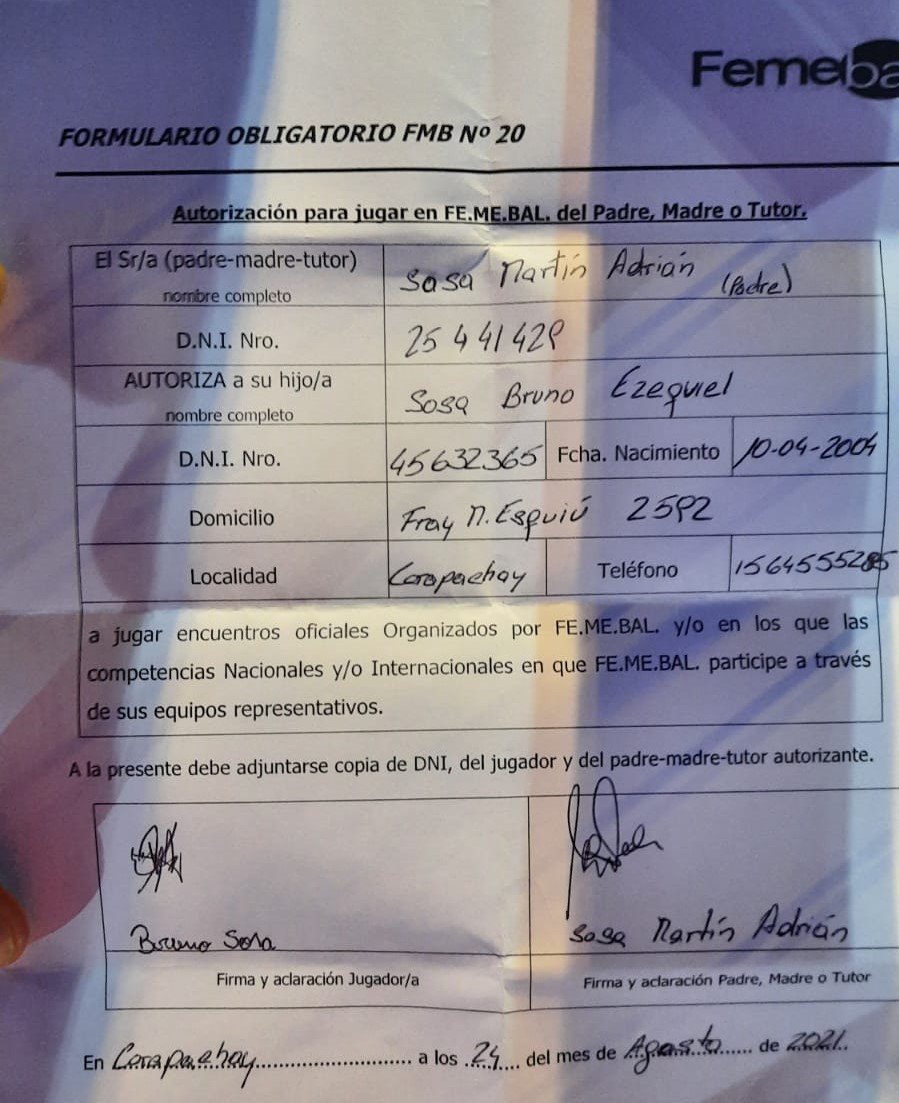 Femeba
FORMULARIO OBLIGATORIO FMB Nº 20
Autorización para jugar en FE.ME.BAL. del Padre, Madre o Tutor.
El Sr/a (padre-madre-tutor) nombre completo Sosa Martín Adrián (Padre)
D.N.I. Nro. 25 441 429
AUTORIZA a su hijo/a nombre completo Sosa Bruno Ezequiel
D.N.I. Nro. 45632365 Fcha. Nacimiento 10-04-2004
Domicilio Fray M. Esquiú 2592
Localidad Carapachay Teléfono 1564555285
a jugar encuentros oficiales Organizados por FE.ME.BAL. y/o en los que las
competencias Nacionales y/o Internacionales en que FE.ME.BAL. participe a través
de sus equipos representativos.
A la presente debe adjuntarse copia de DNI, del jugador y del padre-madre-tutor autorizante.
Bruno Sosa Sosa Martín Adrián
Firma y aclaración Jugador/a Firma y aclaración Padre, Madre o Tutor
En Carapachay a los 24 del mes de Agosto de 2021.